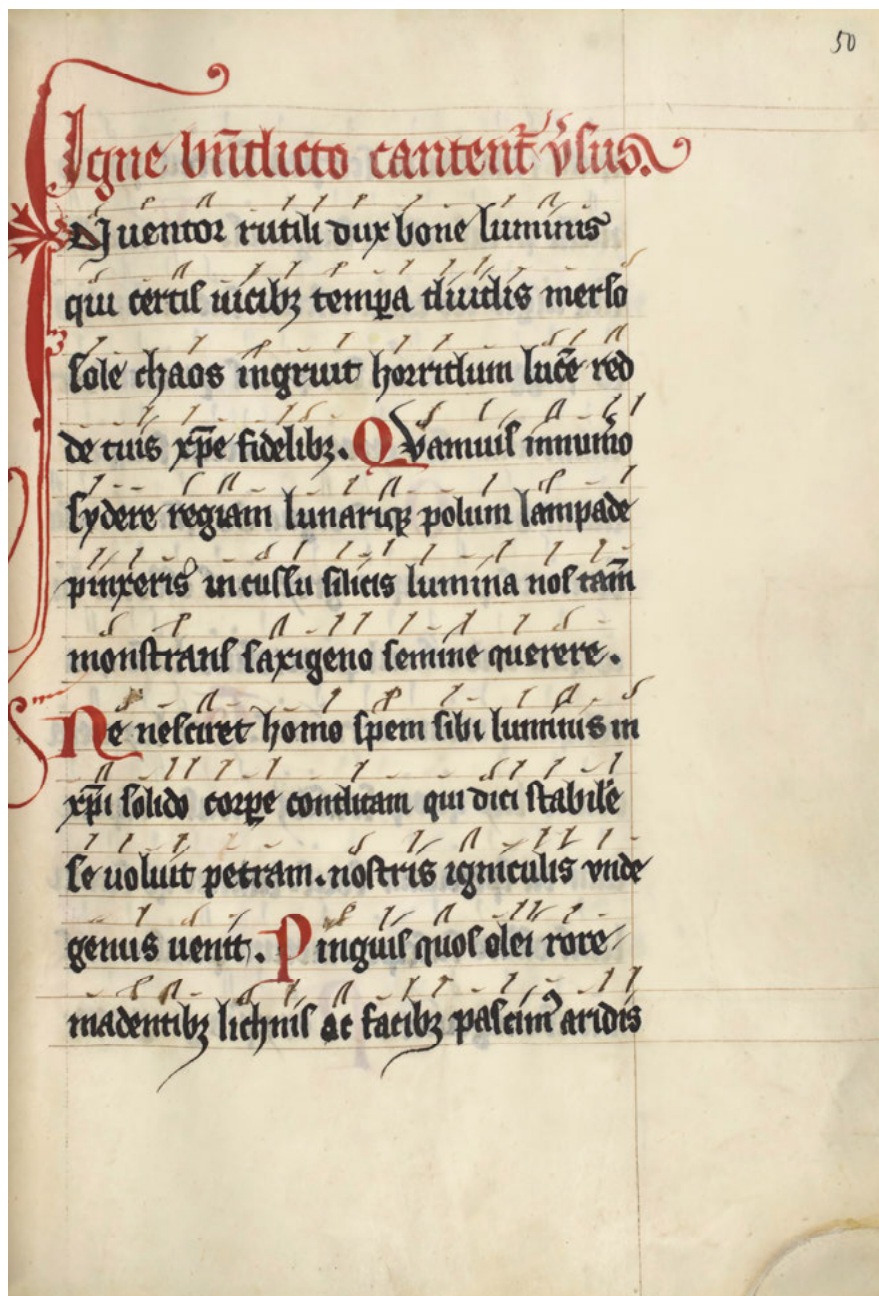 50
Igne bn̄dicto cantent᷑ v̓sus.
Inuentor rutili dux bone luminis
qui certis uicibꝫ tempꝑa diuidis merso
sole chaos ingruit horridum lucē red
de tuis xp̄e fidelibꝫ. Quamuis innum̓o
sydere regiam lunariqꝫ polum lampade
pinxeris incussu silicis lumina nos tam̄
monstrans saxigeno semine querere.
Ne nesciret homo spem sibi luminis in
xp̄i solido corꝑe conditam qui dici stabilē
se uoluit petram. nostris igniculis vnde
genus uenit. Pinguis quos olei rore
madentibꝫ lichnis ac facibꝫ pascim᷒ aridis